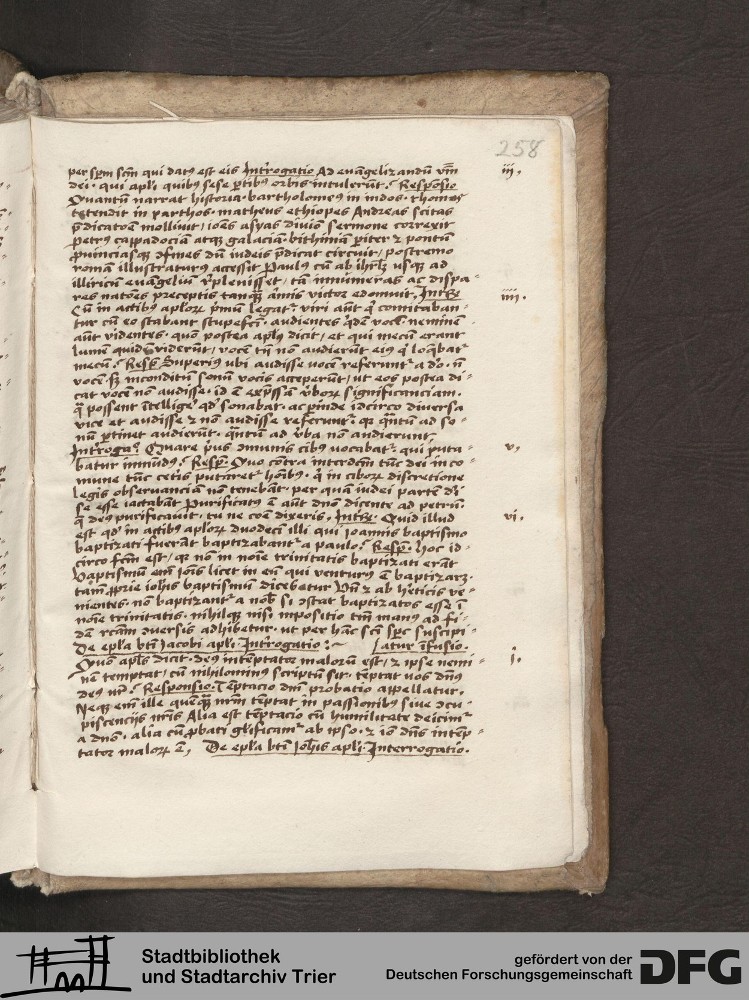 258
per sp̄m sc̄m qui datꝰ est eis Int̄rogatio Ad euāgelizandū v̄m iii.
dei· qui apl̄i quibꝰ sese ꝑtibꝰ orbis intulerūt? Respōsio
Quantū narrat historia· bartholomeꝰ in indos· thomas
tetendit in parthos· matheus ethiopes Andreas scitas
p̄dicatōe molliuit/ ioēs asyas diuīo sermone correxit
petrꝰ cappadociā atqꝫ galaciā· bithiniā ꝑiter ⁊ pontū
ꝓuinciasqꝫ ꝯfines dū iudeis p̄dicat circuit/ postremo
romā illustraturꝰ accessit Paulꝰ cū ab ihrl̄ꝫ usqꝫ ad
illiricū euāgeliū r̄pleuisset/ tā innumeras ac dispa-
res natōes preceptis tanqꝫ armis victor edomuit. Int̄ꝝ iiii.
Cū in actibꝰ apl̄oꝝ p̄mū legat᷑ viri aūt q̇ comitaban-
tur cū eo stabant stupefc̄i· audientes q̇dē vocē neminē
aūt videntes· quō postea apl̄ꝰ dicit/ et qui mecū erant
lumē quid viderūt/ vocē n̄ non audierūt eiꝰ q̇ loq̄bat᷑
mecū? Resꝑ Superiꝰ ubi audisse uocē referunt᷑ a dō· n̄
vocē· sꝫ inconditū sonū vocis acceperūt/ ut eos postea di-
cat vocē nō audisse· id ē exp̄ssā v̄boꝝ significanciam·
q̄ possent ītellige qd̓ sonabat· ac ꝑinde idcirco diuersa
vice et audisse ⁊ nō audisse referunt᷑· qꝛ q̄ntū ad so-
nū ꝑtinet audierūt· q̄ntū ad v̄ba nō audierunt·
Int̄roga° Quare p̄us ꝯmunis cibꝰ vocabat᷑ qui puta- v.
batur inmūdꝰ? Resꝑ· Quo cōtra interdcm̄ tūc dei in co-
mune tūc cetis putaret᷑ hōibꝰ· q̇ in ciboꝝ discretione
legis obseruanciā nō tenebāt· per quā iudei partē dī
se esse iactabāt Purificatꝰ ē aūt dn̄o dicente ad petrū·
q̄ deꝰ purificauit· tu ne coē dixeris. Int̄ꝝ· Quid illud vi.
est qd̓ in actibꝰ apl̄oꝝ duodeci illi qui Joannis baptismo
baptizati fuerāt baptizabant᷑ a paulo? Resꝑ· hoc id-
circo fcm̄ est/ qꝛ nō in noīe trinitatis baptizati erāt
Baptismū em̄ Joīs licet in eū qui venturꝰ ē baptizarꝫ·
tam ꝓprie iohīs baptismū dicebetur Vn̄ ⁊ ab hēticis ve-
nientes· nō baptizant᷑ a nob̄ si ꝯstat baptizatos esse ī
noīe trinitatis· nihilqꝫ nisi impositio tm̄ manꝰ ad fi-
dē rcam ꝯuersis adhibetur· ut per hāc sc̄i sp̄c suscipi-
De epl̄a bt̄i Jacobi apl̄i· Int̄rogatio:~ [atur īfusio.
Quō apl̄s dicit· deꝰ intēptator maloꝝ est/ ⁊ ipse nemi- i.
nē temptat/ cū nihilominꝰ scriptū sit/ tēptat vos dn̄s
deꝰ vr̄? Responsio. Tēptacio dm̄ probatio appellatur.
Neqꝫ em̄ ille quēq̄ꝫ nr̄m tēptat in passionibꝰ siue ꝯcu-
piscencijs nr̄is Alia est tēptacio cū humilitate deicim᷑
a dn̄o· alia cū ꝓbati gl̄ificam᷑ ab ipso· ⁊ iō dn̄s intēp-
tator maloꝝ ē, De epl̄a bt̄i Joh̄is apl̄i· Interrogatio.
Stadtbibliothek
und Stadtarchiv Trier
gefördert von der
Deutschen Forschungsgemeinschaft
DFG